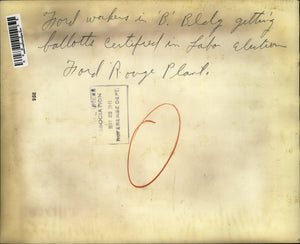 Ford workers in 'B' Bldg getting
ballotts certified in Labor Election
Ford Rouge Plant.
ASSOCIATION
REFERENCE DEPT.